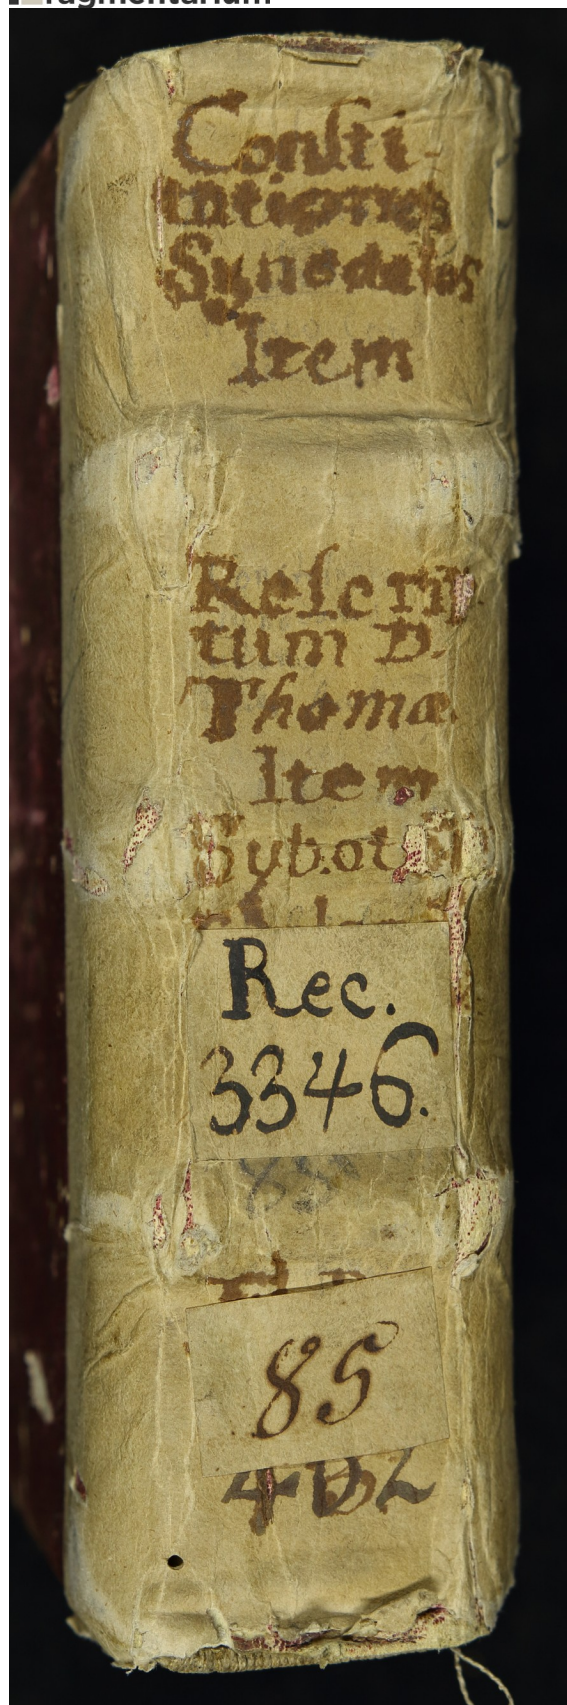 Consti-
tutiones
Synodales
Item
Rescrip
tum D.
Thomæ
Item
Sybot
Rec.
3346.
85
85
402